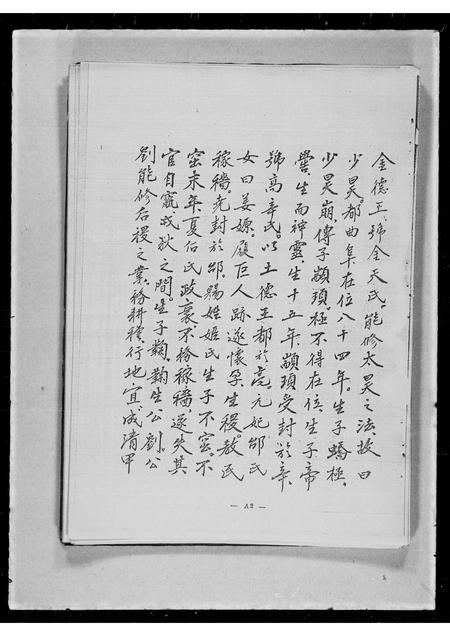 金德王、號金天氏。能修太昊之法故曰
少昊。都曲阜。在位八十四年。生子蟜極。
少昊崩、傳子顓頊。極不得在位。生子帝
嚳。生而神靈。生十五年、顓頊受封於辛、
號高辛氏。以土德王都於亳。元妃邰氏
女曰姜嫄。履巨人跡遂懷孕。生稷教民
稼穡。克封於邰。賜姓姬氏生子不窋。不
窋末年、夏后氏政衰不務稼穡、遂失其
官自竄戎狄之間。生子鞠。鞠生公劉。公
劉能修后稷之業、務耕種、行地宜成清甲